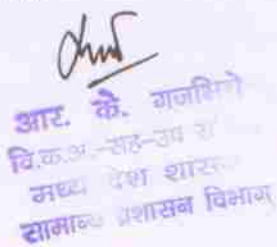 आर. के. गजभिये
वि.क.अ.-सह-उप स
मध्य देश शास
सामान्य प्रशासन विभाग